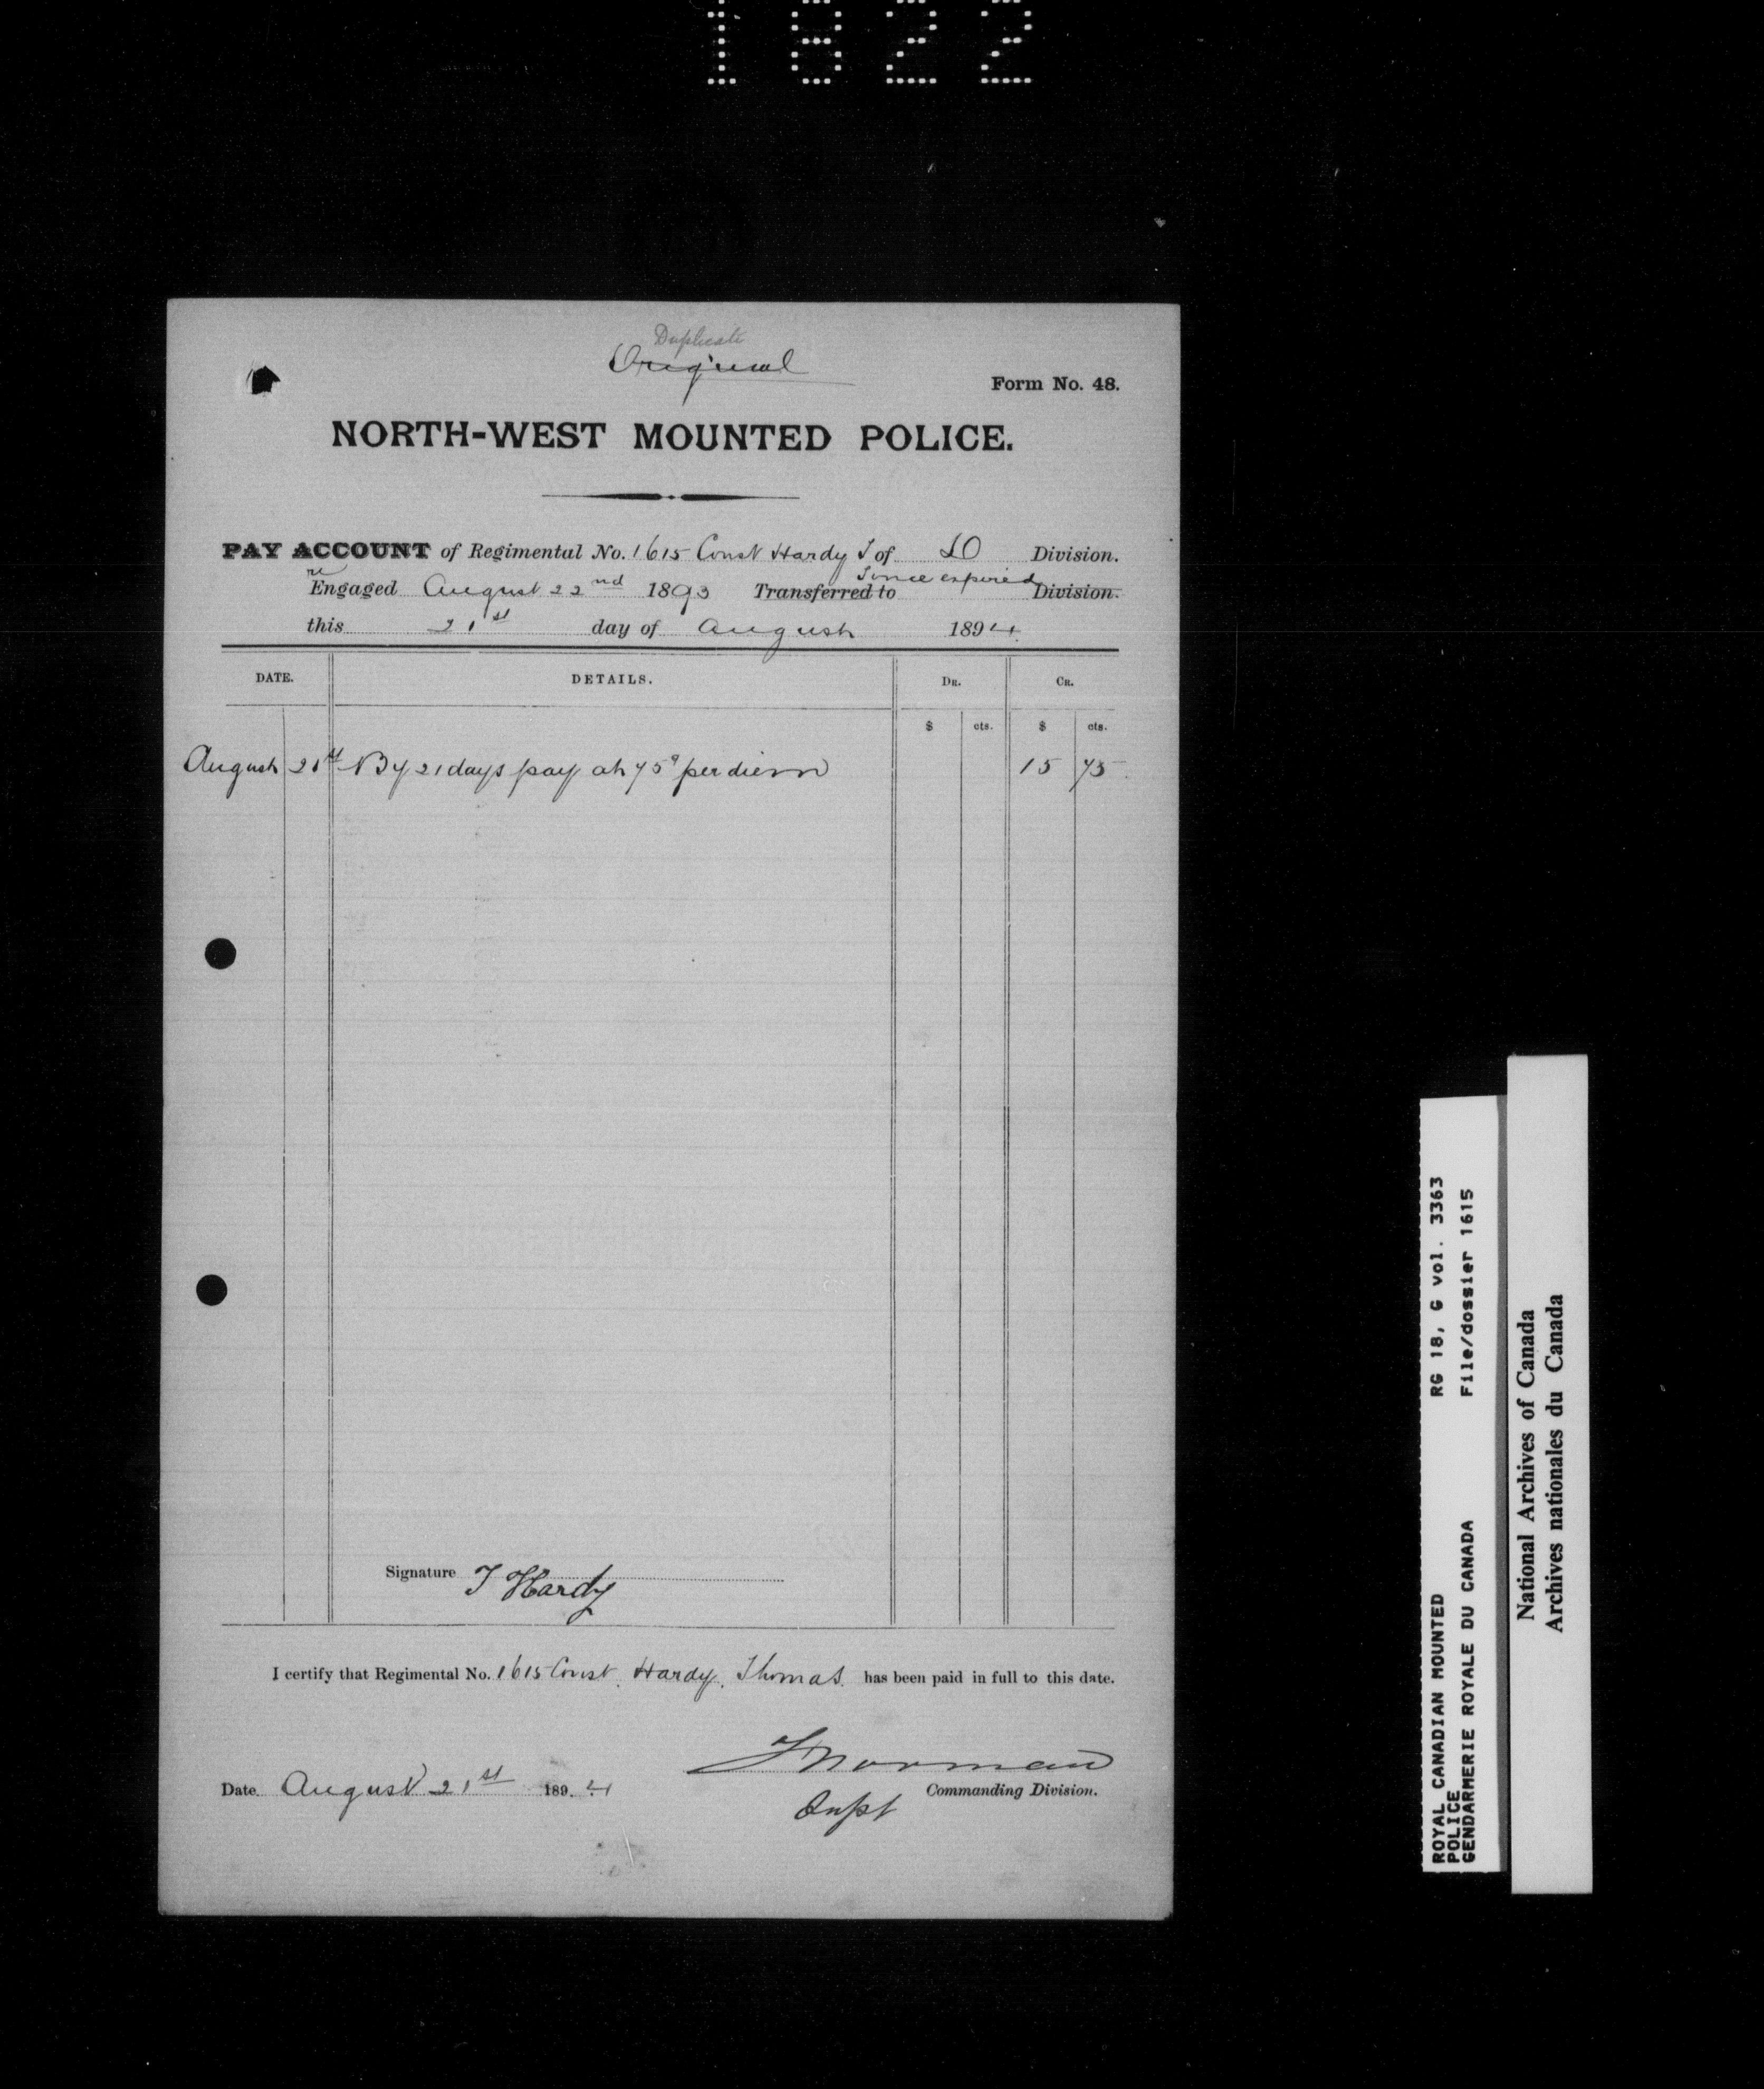 1822
Duplicate
Original
Form No. 48.
NORTH-WEST MOUNTED POLICE.
PAY ACCOUNT of Regimental No. 1615 Const Hardy T of D Division.
re Engaged August 22nd 1893 Transferred to Time expired Division.
this 21st day of August 1894
DATE. DETAILS. DR. CR.
$ cts. $ cts.
August 21st By 21 days pay at 75c per diem 15 75
Signature T Hardy
I certify that Regimental No. 1615 Const. Hardy, Thomas. has been paid in full to this date.
Norman
Date August 21st 1894 Commanding Division.
Inspt
ROYAL CANADIAN MOUNTED RG 18, G vol. 3363
POLICE File/dossier 1615
GENDARMERIE ROYALE DU CANADA
National Archives of Canada
Archives nationales du Canada